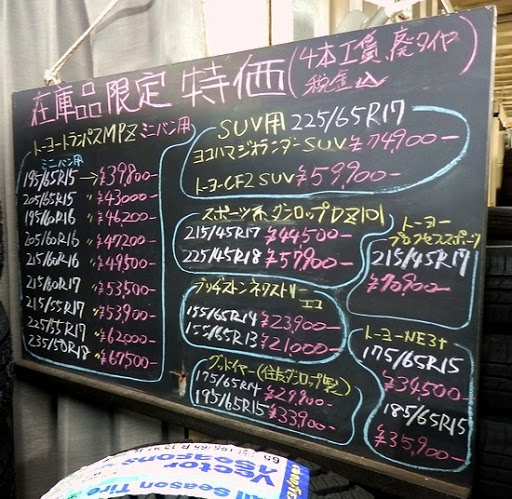 在庫品限定 特価(4本工賃、廃タイヤ
税金込
トーヨートランパスMPZ ミニバン用
ミニバン用
195/65R15→¥39800-
205/65R15 〃¥43000-
195/60R16 〃¥46,200-
205/60R16 〃¥47200-
215/60R16 〃¥49,500-
215/60R17 〃¥53,500-
215/55R17 〃¥53900-
225/55R17 〃¥62000-
235/50R18 〃¥67500-
SUV用 225/65R17
ヨコハマジオランダーSUV ¥74900-
トーヨーCF2 SUV ¥59,900-
スポーツ系 ダンロップDZ101
215/45R17 ¥44500-
225/45R18 ¥57900-
トーヨー
プロクセススポーツ
215/45R17
¥70,900-
ブリヂストンネクストリー
エコ
155/65R14 ¥23,900-
155/65R13 ¥21,000-
トーヨーNE3+
175/65R15
¥34,500-
185/65R15
¥35,900-
グッドイヤー(住友ダンロップ製)
175/65R14 ¥29,800-
195/65R15 ¥33,900-
Vector
4Seasons
All Season Tire